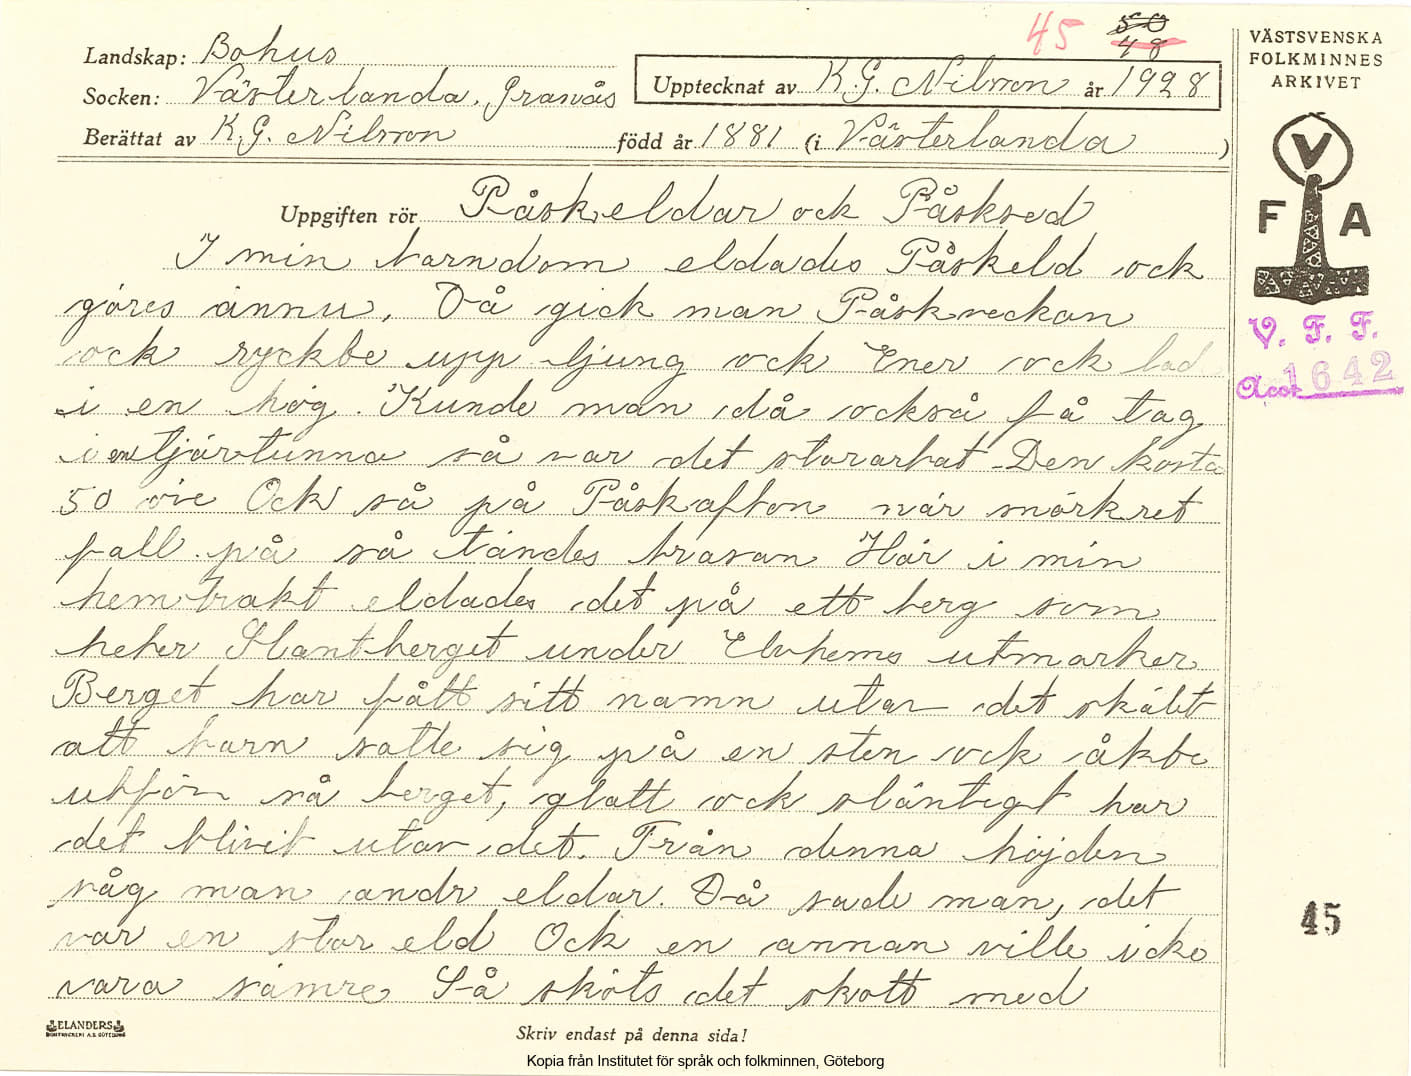 45 50
48
Landskap: Bohus
Socken: Västerlanda, Granås
Upptecknat av K.G. Nilsson år 1928
Berättat av K.G. Nilsson född år 1881 (i Västerlanda)
VÄSTSVENSKA
FOLKMINNES
ARKIVET
V
F A
V. F. F.
Acc. 1642
Uppgiften rör Påskeldar ock Påsksed
I min barndom eldades Påskeld ock
göres ännu. Då gick man Påskveckan
ock ryckte upp ljung ock Ener ock lad
i en hög. Kunde man då också få tag
i en tjärtunna så var det storartat Den kosta
50 öre Ock så på Påskafton när mörkret
fall på så tändes brasan Här i min
hemtrakt eldades det på ett berg som
heter Slantberget under Elvhems utmarker
Berget har fått sitt namn utav det skälet
att barn satte sig på en sten ock åkte
utför så berget, glatt ock släntigt har
det blivit utav det. Från denna höjden
såg man andr eldar. Då sade man, det
var en stor eld Ock en annan ville icke
vara sämre Så sköts det skott med
45
ELANDERS
BOKTRYCKERI A.B. GÖTEBORG
Skriv endast på denna sida!
Kopia från Institutet för språk och folkminnen, Göteborg